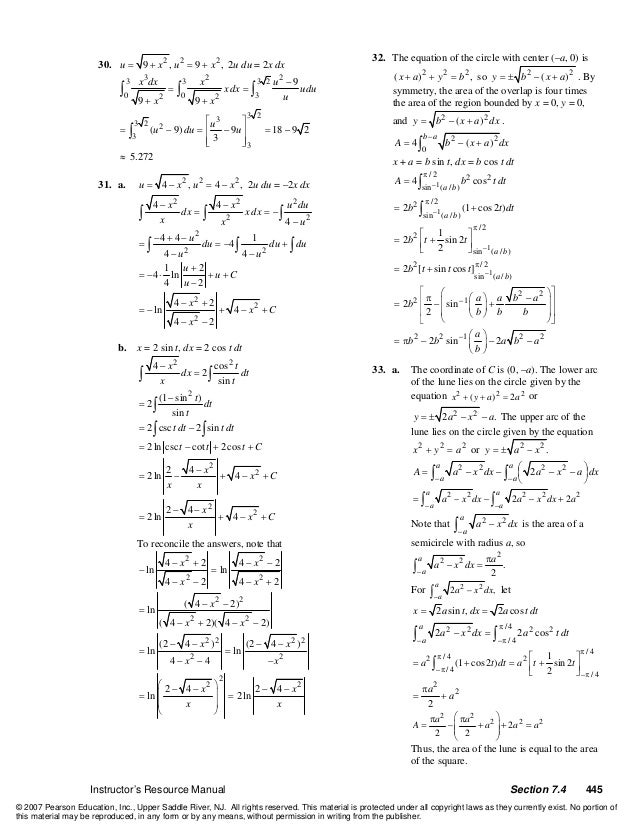 30. u = √(9 + x²), u² = 9 + x², 2u du = 2x dx
∫₀³ x³dx/√(9 + x²) = ∫₀³ x²/√(9 + x²) xdx = ∫₃^(3√2) (u² − 9)/u udu
= ∫₃^(3√2) (u² − 9) du = [u³/3 − 9u]₃^(3√2) = 18 − 9√2
≈ 5.272
31. a. u = √(4 − x²), u² = 4 − x², 2u du = −2x dx
∫ √(4 − x²)/x dx = ∫ √(4 − x²)/x² xdx = −∫ u²du/(4 − u²)
= ∫ (−4 + 4 − u²)/(4 − u²) du = −4∫ 1/(4 − u²) du + ∫ du
= −4 · 1/4 ln|(u + 2)/(u − 2)| + u + C
= −ln|(√(4 − x²) + 2)/(√(4 − x²) − 2)| + √(4 − x²) + C
b. x = 2 sin t, dx = 2 cos t dt
∫ √(4 − x²)/x dx = 2∫ cos² t/sin t dt
= 2∫ (1 − sin² t)/sin t dt
= 2∫ csc t dt − 2∫ sin t dt
= 2 ln|csc t − cot t| + 2cos t + C
= 2 ln|2/x − √(4 − x²)/x| + √(4 − x²) + C
= 2 ln|(2 − √(4 − x²))/x| + √(4 − x²) + C
To reconcile the answers, note that
−ln|(√(4 − x²) + 2)/(√(4 − x²) − 2)| = ln|(√(4 − x²) − 2)/(√(4 − x²) + 2)|
= ln|(√(4 − x²) − 2)²/((√(4 − x²) + 2)(√(4 − x²) − 2))|
= ln|(2 − √(4 − x²))²/(4 − x² − 4)| = ln|(2 − √(4 − x²))²/(−x²)|
= ln|((2 − √(4 − x²))/x)²| = 2 ln|(2 − √(4 − x²))/x|
32. The equation of the circle with center (−a, 0) is
(x + a)² + y² = b², so y = ±√(b² − (x + a)²). By
symmetry, the area of the overlap is four times
the area of the region bounded by x = 0, y = 0,
and y = √(b² − (x + a)²)dx.
A = 4∫₀^(b−a) √(b² − (x + a)²)dx
x + a = b sin t, dx = b cos t dt
A = 4∫_(sin⁻¹(a/b))^(π/2) b² cos² t dt
= 2b² ∫_(sin⁻¹(a/b))^(π/2) (1 + cos 2t)dt
= 2b² [t + 1/2 sin 2t]_(sin⁻¹(a/b))^(π/2)
= 2b²[t + sin t cos t]_(sin⁻¹(a/b))^(π/2)
= 2b² [π/2 − (sin⁻¹(a/b) + a/b √(b² − a²)/b)]
= πb² − 2b² sin⁻¹(a/b) − 2a√(b² − a²)
33. a. The coordinate of C is (0, −a). The lower arc
of the lune lies on the circle given by the
equation x² + (y + a)² = 2a² or
y = ±√(2a² − x²) − a. The upper arc of the
lune lies on the circle given by the equation
x² + y² = a² or y = ±√(a² − x²).
A = ∫₋ₐᵃ √(a² − x²)dx − ∫₋ₐᵃ (√(2a² − x²) − a)dx
= ∫₋ₐᵃ √(a² − x²)dx − ∫₋ₐᵃ √(2a² − x²)dx + 2a²
Note that ∫₋ₐᵃ √(a² − x²)dx is the area of a
semicircle with radius a, so
∫₋ₐᵃ √(a² − x²)dx = πa²/2.
For ∫₋ₐᵃ √(2a² − x²)dx, let
x = √2a sin t, dx = √2a cos t dt
∫₋ₐᵃ √(2a² − x²)dx = ∫_(−π/4)^(π/4) 2a² cos² t dt
= a² ∫_(−π/4)^(π/4) (1 + cos 2t)dt = a² [t + 1/2 sin 2t]_(−π/4)^(π/4)
= πa²/2 + a²
A = πa²/2 − (πa²/2 + a²) + 2a² = a²
Thus, the area of the lune is equal to the area
of the square.
Instructor's Resource Manual Section 7.4 445
© 2007 Pearson Education, Inc., Upper Saddle River, NJ. All rights reserved. This material is protected under all copyright laws as they currently exist. No portion of
this material may be reproduced, in any form or by any means, without permission in writing from the publisher.